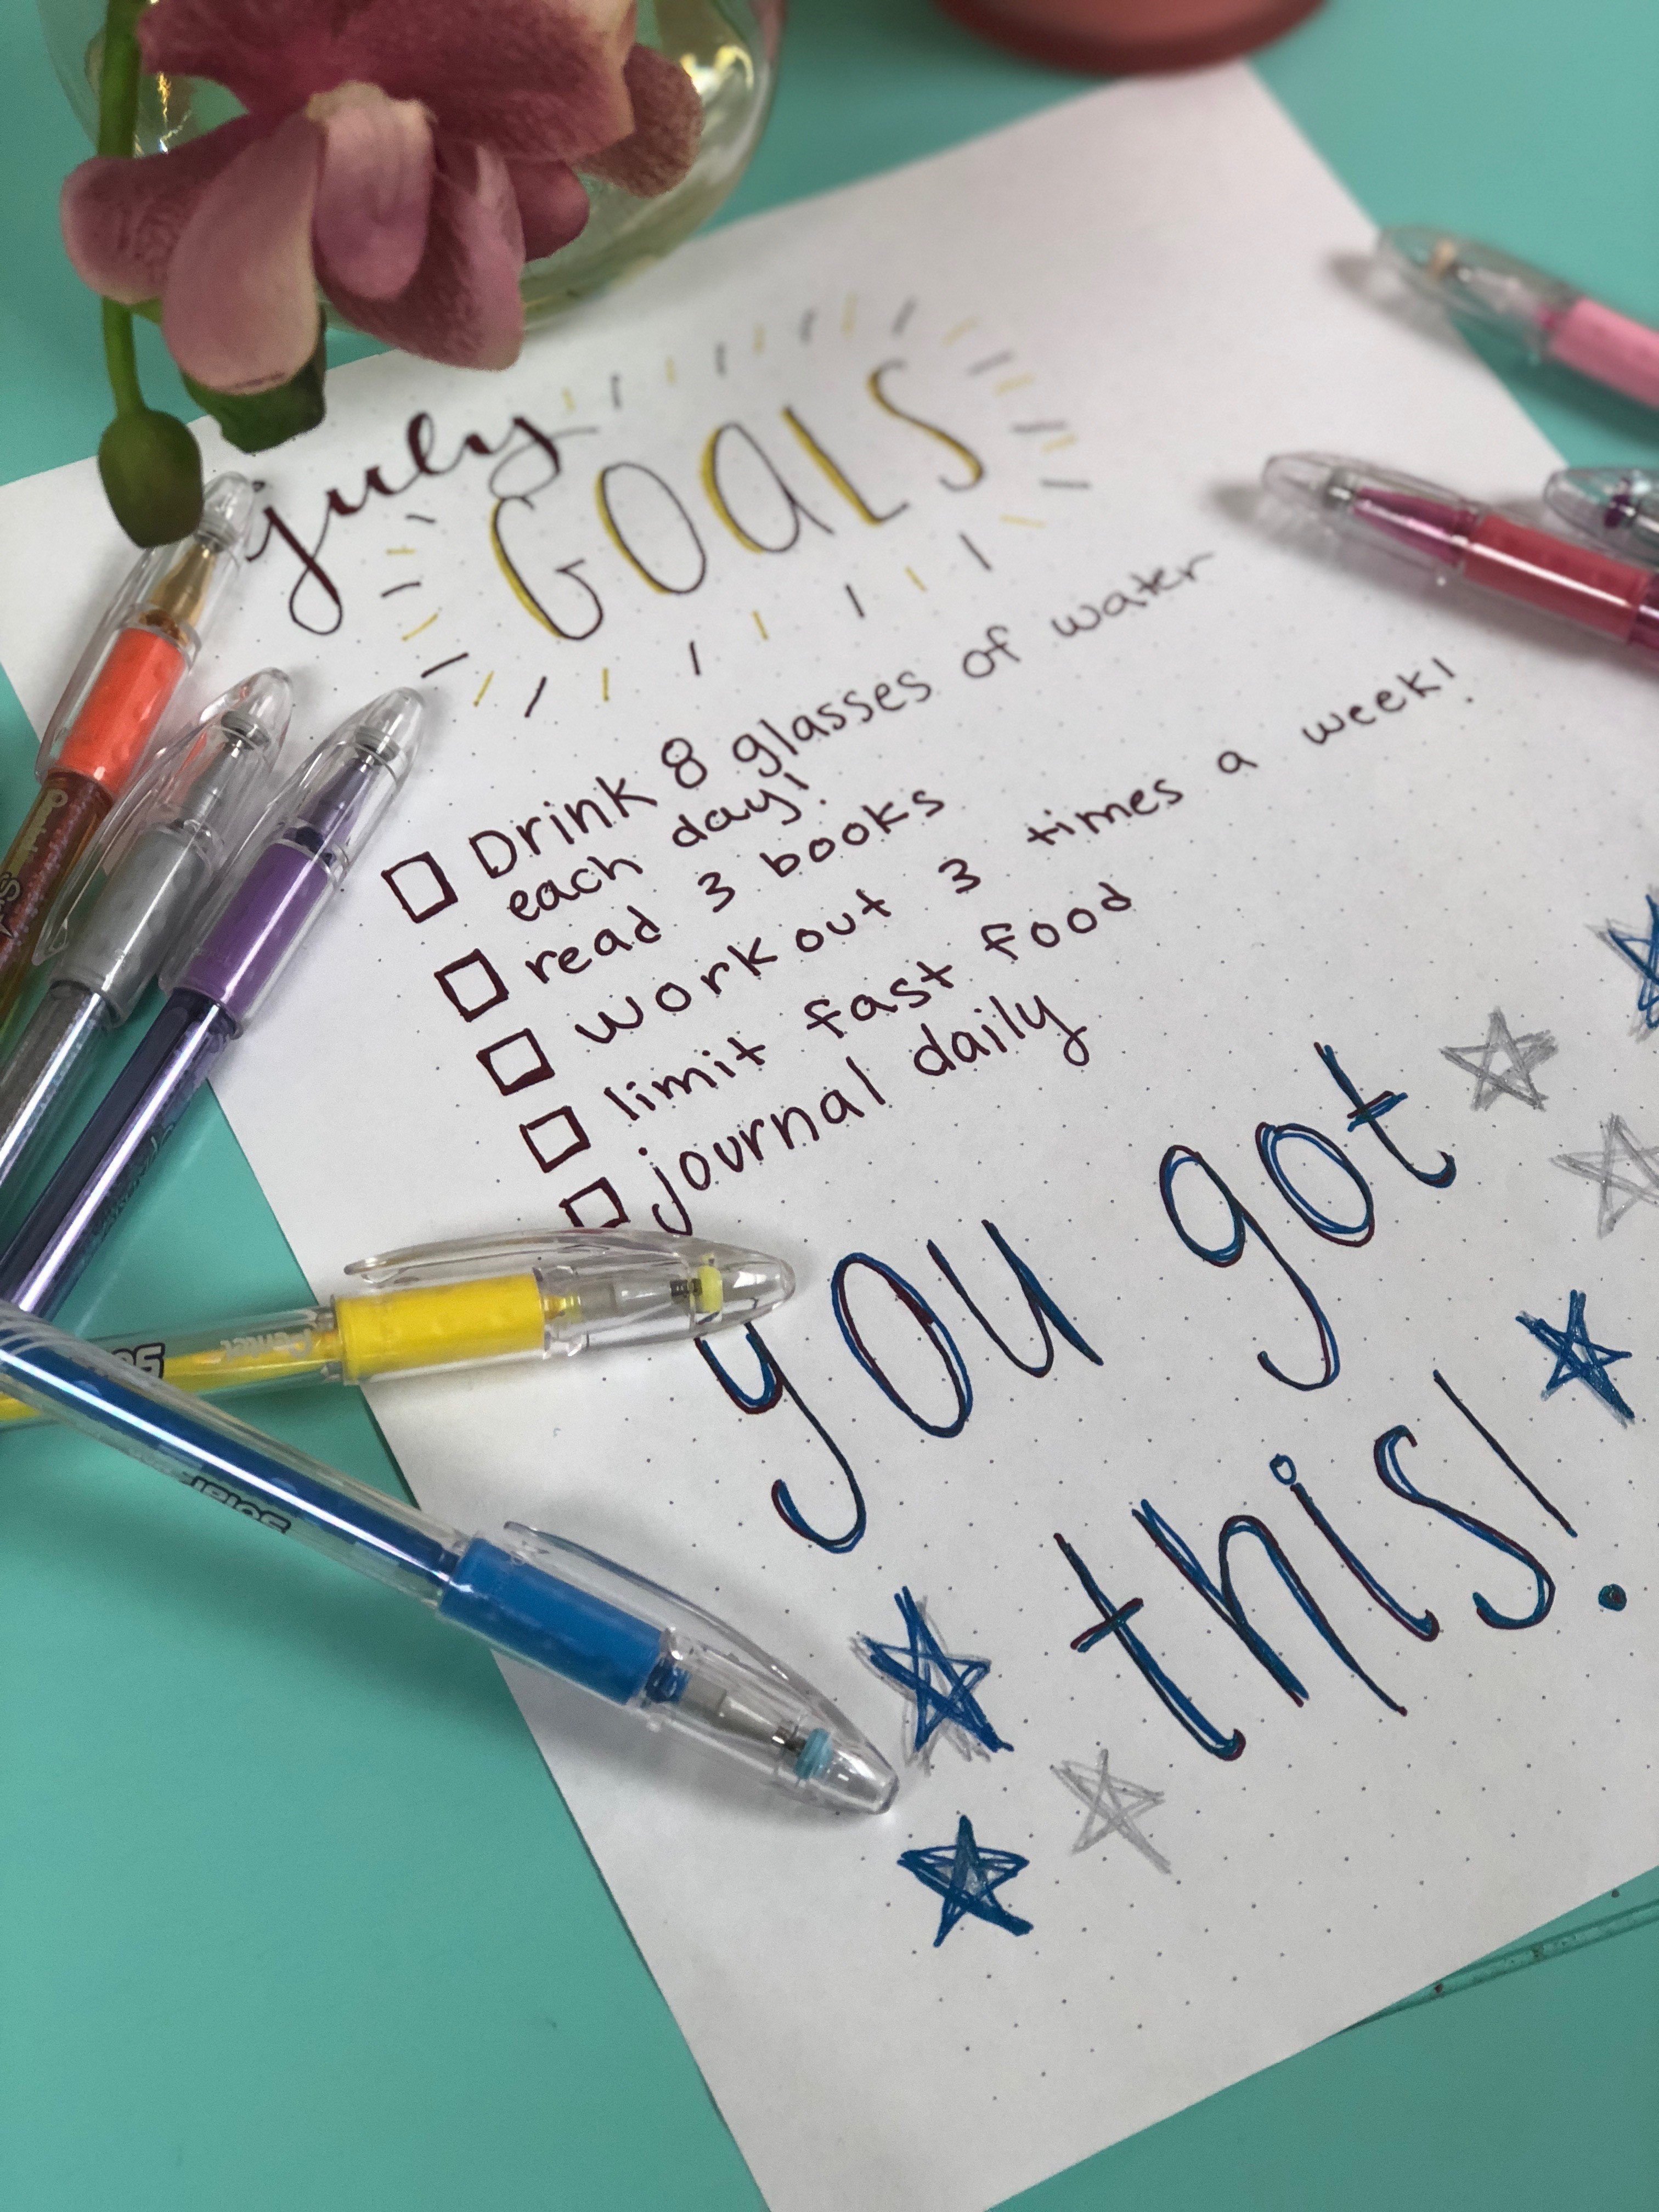 july
GOALS
Drink 8 glasses of water
each day!
read 3 books
workout 3 times a week!
limit fast food
journal daily
you got
this!
Pentel
Solar